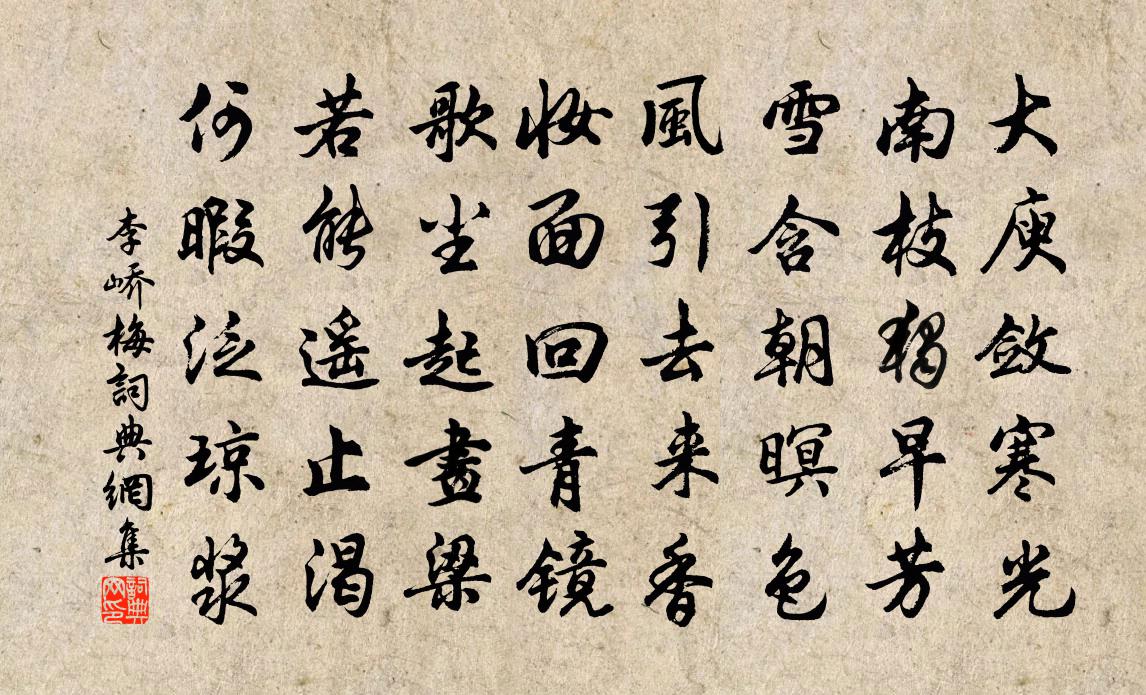 大庾斂寒光
南枝獨早芳
雪含朝暝色
風引去来香
妝面回青镜
歌尘起畫梁
若能遥止渴
何暇泛琼漿
李嶠梅詞典網集
詞典网印